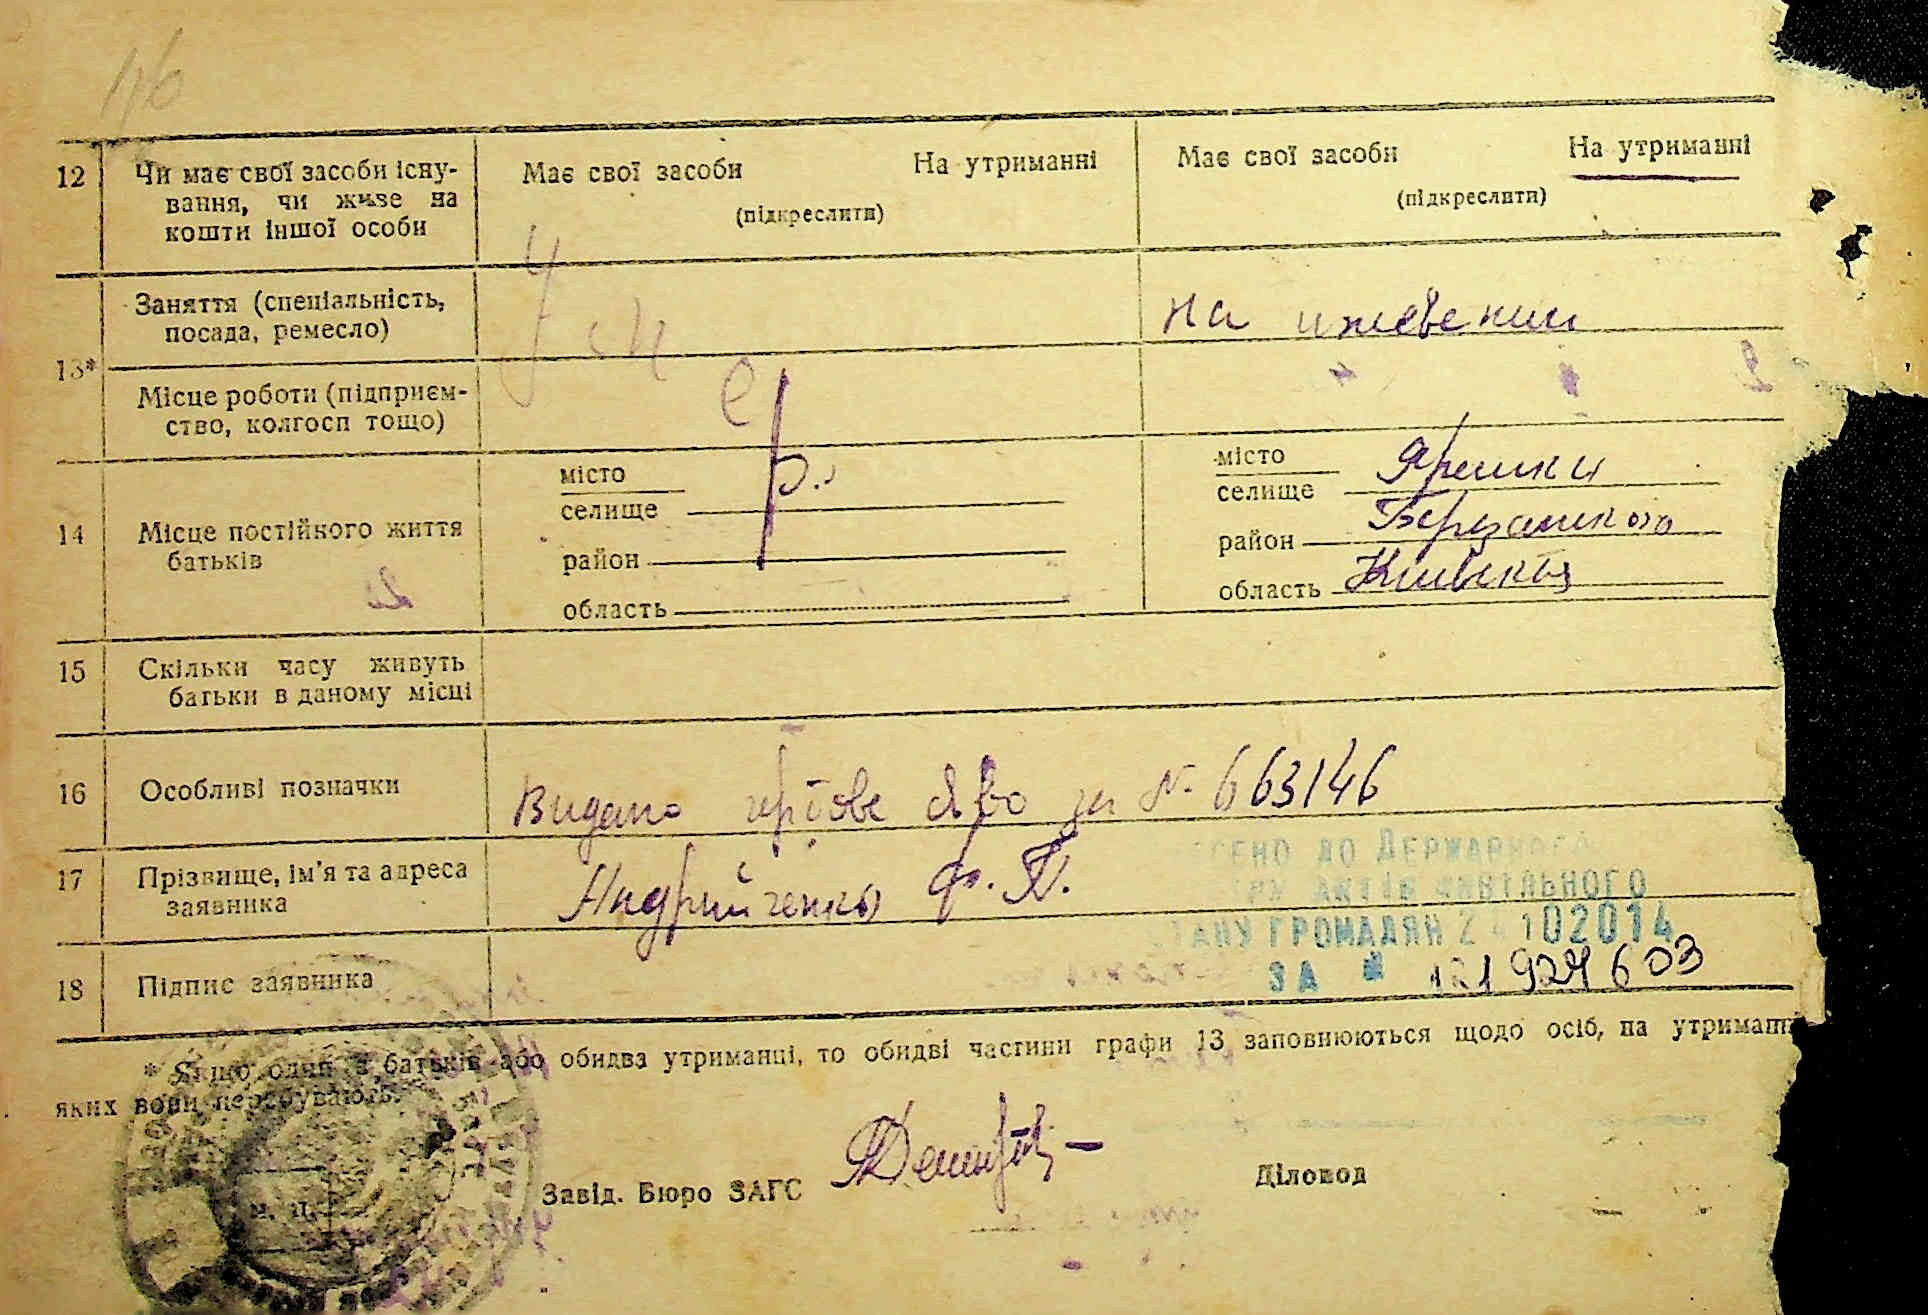 12 Чи має свої засоби існу-
вання, чи живе на
кошти іншої особи
Має свої засоби На утриманні
(підкреслити)
Має свої засоби На утриманні
(підкреслити)
Умер
13*
Заняття (спеціальність,
посада, ремесло)
на иждевении
Місце роботи (підприєм-
ство, колгосп тощо)
14 Місце постійного життя
батьків
місто
селище
район
область
місто
селище Ярешки
район
область
15 Скільки часу живуть
батьки в даному місці
16 Особливі позначки
Видано за № 663146
17 Прізвище, ім'я та адреса
заявника
Ф. П.
ДО ДЕРЖАВНОГО
АКТІВ ЦИВІЛЬНОГО
СТАНУ ГРОМАДЯН 102014
ЗА
18 Підпис заявника
* Якщо один з батьків або обидва утриманці, то обидві частини графи 13 заповнюються щодо осіб, на утриманні
яких вони перебувають.
М. П.
Завід. Бюро ЗАГС
Діловод